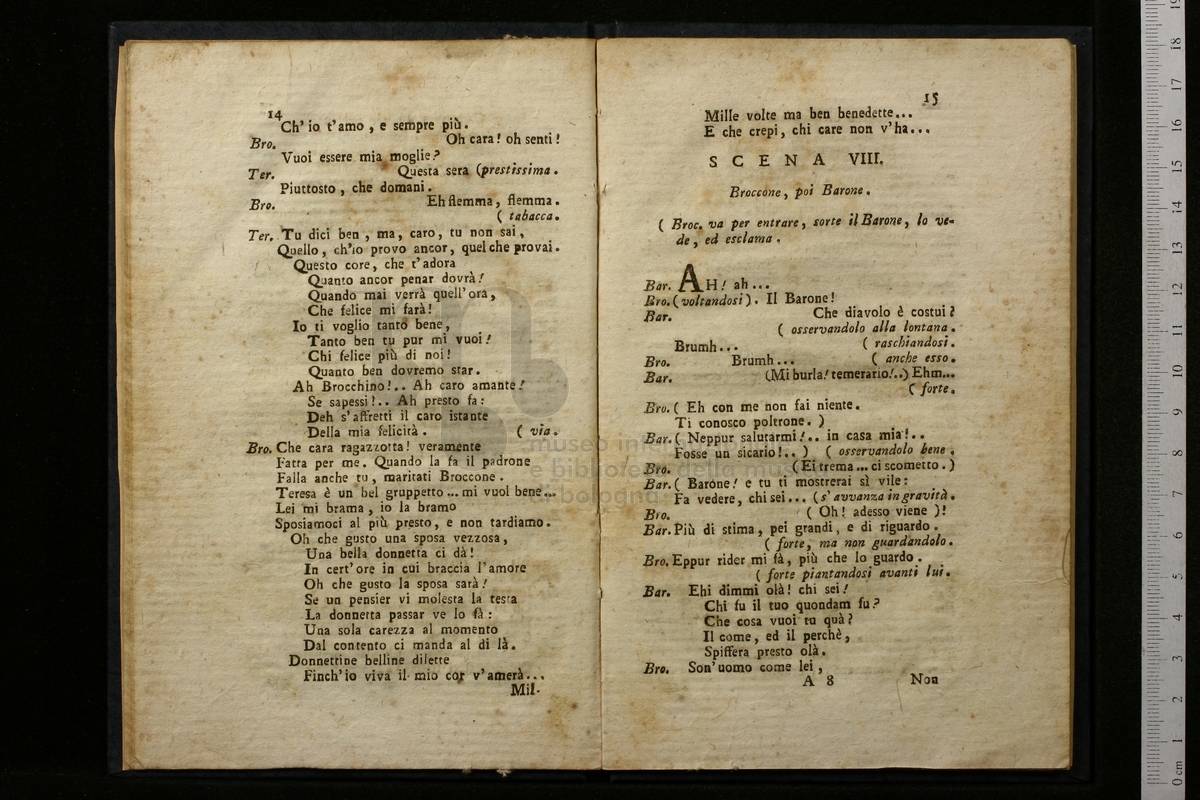 14
Ch' io t'amo , e sempre più.
Bro. Oh cara! oh senti!
Vuoi essere mia moglie?
Ter. Questa sera (prestissima.
Piuttosto , che domani.
Bro. Eh flemma, flemma.
( tabacca.
Ter. Tu dici ben , ma, caro, tu non sai,
Quello , ch'io provo ancor, quel che provai.
Questo core, che t'adora
Quanto ancor penar dovrà!
Quando mai verrà quell'ora,
Che felice mi farà!
Io ti voglio tanto bene,
Tanto ben tu pur mi vuoi!
Chi felice più di noi!
Quanto ben dovremo star.
Ah Brocchino!.. Ah caro amante!
Se sapessi!.. Ah presto fa:
Deh s'affretti il caro istante
Della mia felicità. ( via.
Bro. Che cara ragazzotta! veramente
Fatta per me. Quando la fa il padrone
Falla anche tu, maritati Broccone.
Teresa è un bel gruppetto... mi vuol bene...
Lei mi brama, io la bramo
Sposiamoci al più presto, e non tardiamo.
Oh che gusto una sposa vezzosa,
Una bella donnetta ci dà!
In cert'ore in cui braccia l'amore
Oh che gusto la sposa sarà!
Se un pensier vi molesta la testa
La donnetta passar ve lo fà:
Una sola carezza al momento
Dal contento ci manda al di là.
Donnettine belline dilette
Finch'io viva il mio cor v'amerà...
Mil-
15
Mille volte ma ben benedette...
E che crepi, chi care non v'ha...
SCENA VIII.
Broccone, poi Barone.
( Broc. va per entrare, sorte il Barone, lo ve-
de, ed esclama.
Bar. AH! ah...
Bro. (voltandosi). Il Barone!
Bar. Che diavolo è costui?
( osservandolo alla lontana.
Brumh... ( raschiandosi.
Bro. Brumh... ( anche esso.
Bar. (Mi burla! temerario!..) Ehm...
( forte.
Bro. ( Eh con me non fai niente.
Ti conosco poltrone. )
Bar. ( Neppur salutarmi!.. in casa mia!..
Fosse un sicario!..) ( osservandolo bene.
Bro. (Ei trema... ci scometto.)
Bar. ( Barone! e tu ti mostrerai sì vile:
Fa vedere, chi sei... (s'avvanza in gravità.
Bro. ( Oh! adesso viene )!
Bar. Più di stima, pei grandi, e di riguardo.
( forte, ma non guardandolo.
Bro. Eppur rider mi fà, più che lo guardo.
( forte piantandosi avanti lui.
Bar. Ehi dimmi olà! chi sei!
Chi fu il tuo quondam fu?
Che cosa vuoi tu quà?
Il come, ed il perchè,
Spiffera presto olà.
Bro. Son'uomo come lei,
A 8 Non
museo internazionale
e biblioteca della musica
di bologna